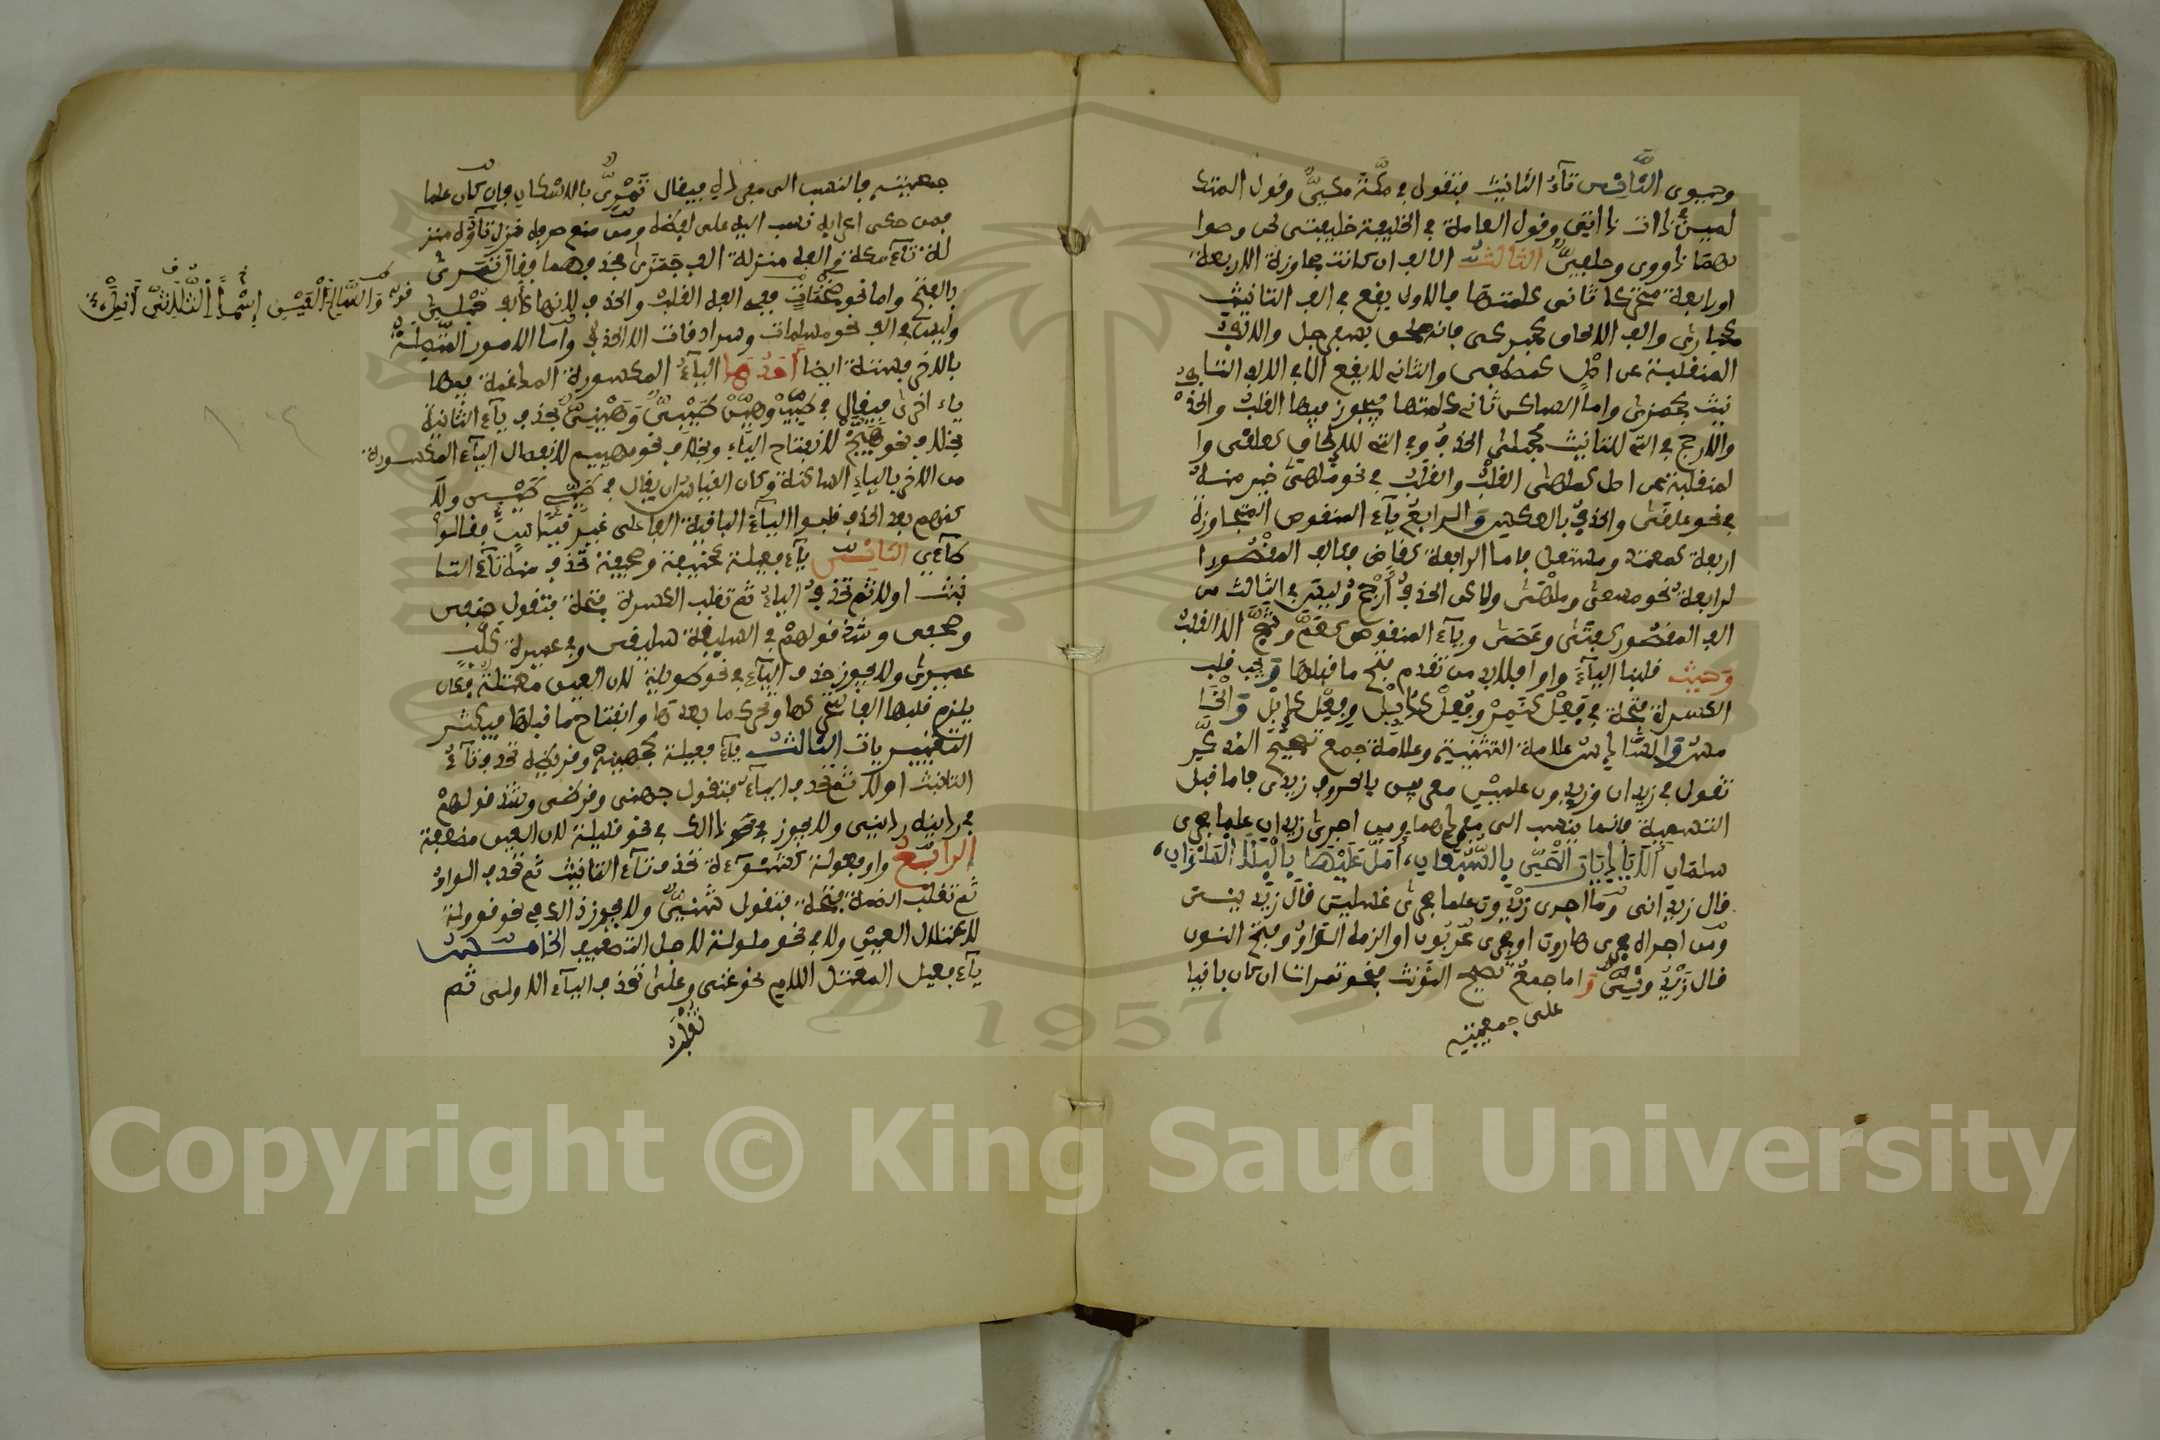 وحبوى الثاني تآء التانيث فتقول في مكة مكيٌّ وقول المتكـ
لمين في ذات ذاتي وقول العامة في الخليفة خليفتى لحن وصوا
بهما ذاووى وخلفيٌّ الثالث الالف ان كانت مجاوزة الاربعة
او رابعة متحركا ثانى كلمتها فالاول يقع في الف التانيث
كحبارى والف الالحاق كحبركى فانه ملحق بسفرجل والالف
المنقلبة عن اصل كمصطفى والثانى لا يقع الا في الف التا
نيث كجمزى واما الساكن ثانى كلمتها فيجوز فيها القلب والحذف
والارجح في التي للتانيث كحبلى الحذف وفي التي للالحاق كعلقى وا
لمنقلبة عن اصل كملهى القلب والقلب في نحو ملهى خير منه
في نحو علقى والحذف بالعكس والرابع يآء المنقوص المتجاوزة
اربعة كمعتد ومستعل فاما الرابعة كقاض فكالف المقصور ا
لرابعة نحو مسعى وملهى ولكن الحذف أرجح وليس في الثالث من
الف المقصور كفتى وعصى ويآء المنقوص كعم وشج الا القلب
وحيث قلبنا اليآء واوا فلابد من تقدم فتح ما قبلها ويجب قلب
الكسرة فتحة في فعل كنمر وفعل كدئل وفعل كإبل والخا
مس والسادس علامة التثنية وعلامة جمع تصحيح المذكر
تقول في زيدان وزيدون علمين معربين بالحروف زيدى فاما قبل
التسمية فانما ينسب الى مفردهما ومن اجرى زيدان علما مجرى
سلمان ألا يا ديار الحي بالسبعان، أمل عليها بالبلى الملوان،
قال زيدانى ومن اجرى زيدون علما مجرى غسلين قال زيدينى
ومن اجراه مجرى هارون او مجرى عربون او الزمه الواو وفتح النون
قال زيدونى واما جمع تصحيح المؤنث فنحو تمرات ان كان باقيا
على جمعيته
جمعيته فالنسب الى مفرده فيقال تمرىٌّ بالاسكان وان كان علما
فمن حكى اعرابه نسب اليه على لفظه ومن منع صرفه نزل تآؤه منز
لة تآء مكة والفه منزلة الف جمزى فحذفهما وقال تمرى
بالفتح واما نحو ضخمات ففي الفه القلب والحذف لانها كالف حبلى
وليس في الف نحو مسلمات وسرادقات الا الحذف وأما الامور المتصلة
بالاخر فستة ايضا أحدها اليآء المكسورة المدغمة فيها
ياء اخرى فيقال في طيب وهين طيبى وهينى بحذف يآء الثانية
بخلاف نحو هبيخ لانفتاح الياء وبخلاف نحو مهييم لانفصال اليآء المكسورة
من الاخر بالياء الساكنة وكان القياس ان يقال في طيئ طيئى ولا
كنهم بعد الحذف قلبوا اليآء الباقية الفا على غير قياس فقالوا
طآءى الثانى يآء فعيلة كحنيفة وصحيفة تحذف منه تآء التا
نيث اولا ثم تحذف الياء ثم تقلب الكسرة فتحة فتقول حنفى
وصحفى وشذ قولهم في السليقة سليقى وفي عميرة كلب
عميرى ولا يجوز حذف اليآء في نحو طويلة لان العين معتلة فكان
يلزم قلبها الفا لتحركها وتحرك ما بعدها وانفتاح ما قبلها فيكثر
التغيير يات الثالث يآء فعيلة كجهينة وقريظة تحذف تآء
التانيث اولا ثم تحذف اليآء فتقول جهنى وقرظى وشذ قولهم
في ردينة ردينى ولا يجوز ذلك في نحو قليلة لان العين مضعفة
الرابع واو فعولة كشنوءة تحذف تآء التانيث ثم تحذف الواو
ثم تقلب الضمة فتحة فتقول شنئىٌّ ولا يجوز ذالك في نحو قوولة
لاعتلال العين ولا في نحو ملولة لاجل التضعيف الخامس
يآء فعيل المعتل اللام نحو غنى وعلى تحذف اليآء الاولى ثم
تقلب